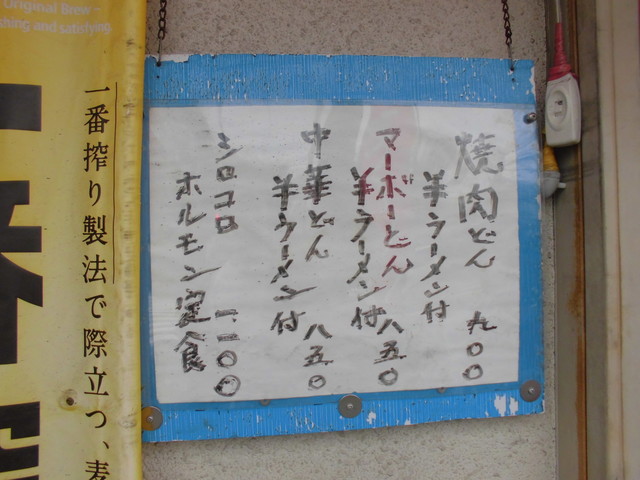 焼肉どん 九〇〇
半ラーメン付
マーボーどん 八五〇
半ラーメン付
中華どん 八五〇
半ラーメン付
シロコロ 一一〇〇
ホルモン定食
Original Brew–
shing and satisfying
一番搾り製法で際立つ、麦